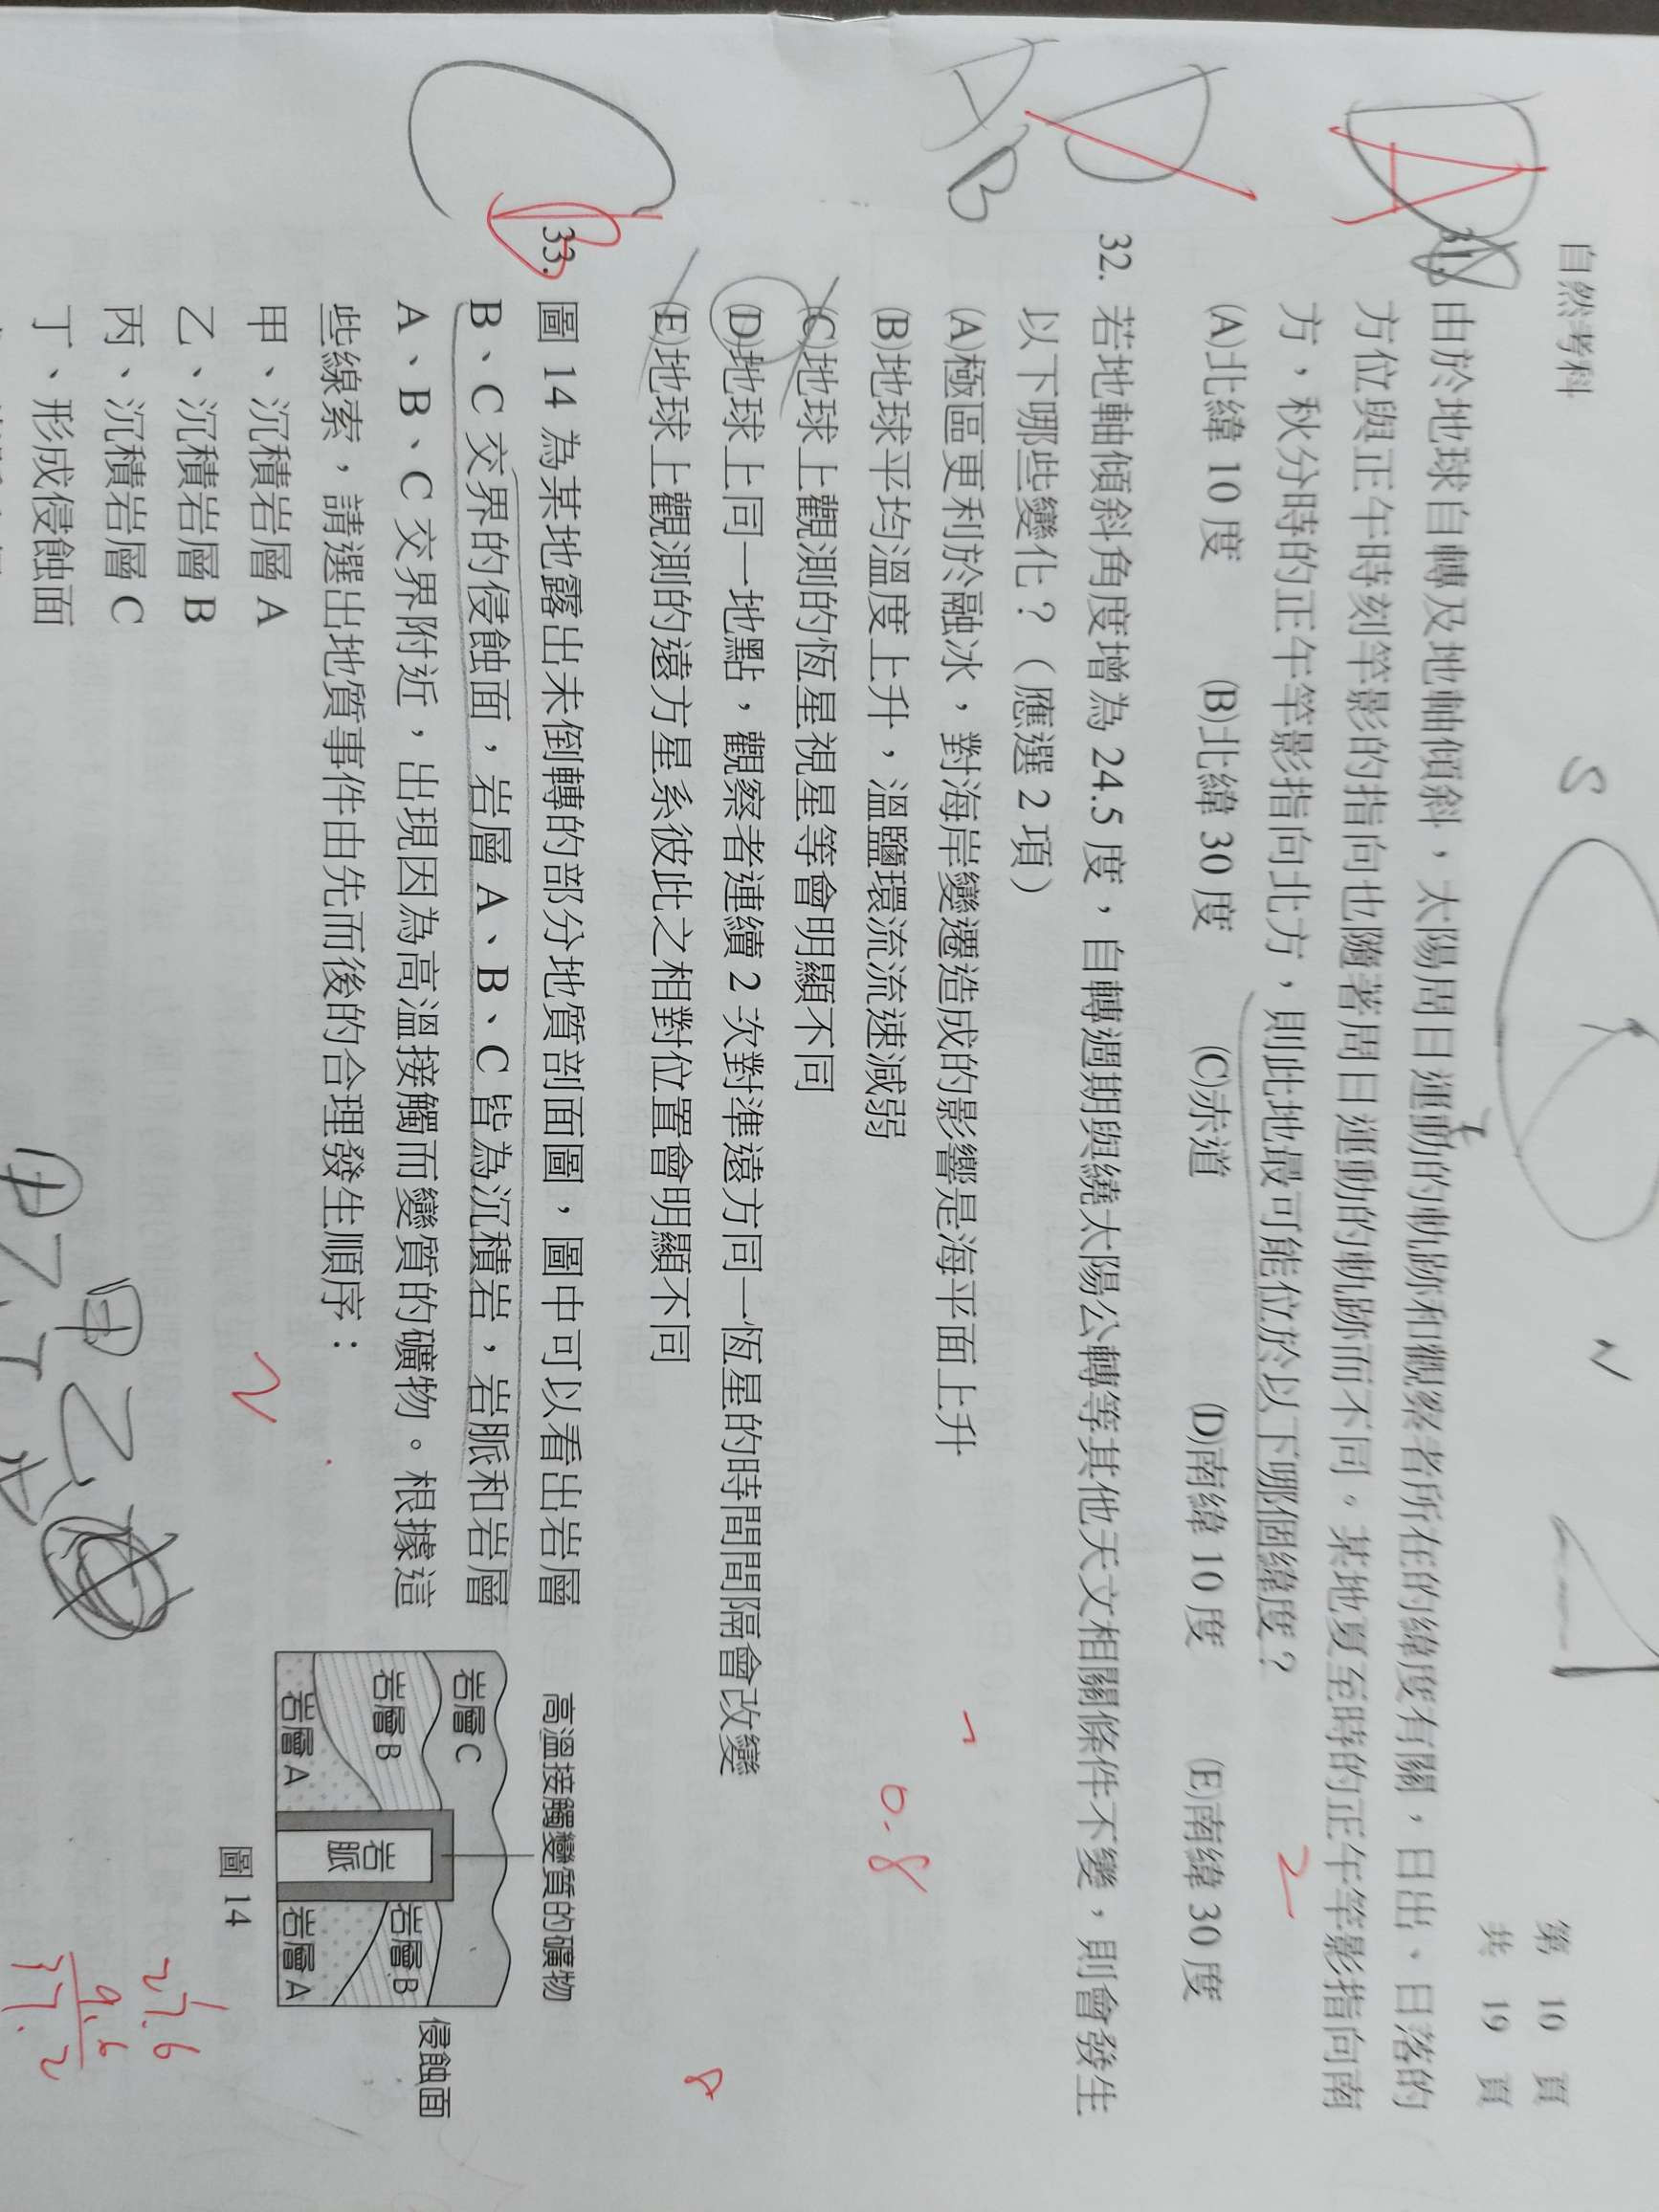 自然考科
第 10 頁
共 19 頁
31. 由於地球自轉及地軸傾斜，太陽周日運動的軌跡和觀察者所在的緯度有關，日出、日落的
方位與正午時刻竿影的指向也隨著周日運動的軌跡而不同。某地夏至時的正午竿影指向南
方，秋分時的正午竿影指向北方，則此地最可能位於以下哪個緯度？
(A)北緯 10 度 (B)北緯 30 度 (C)赤道 (D)南緯 10 度 (E)南緯 30 度
32. 若地軸傾斜角度增為 24.5 度，自轉週期與繞太陽公轉等其他天文相關條件不變，則會發生
以下哪些變化？（應選 2 項）
(A)極區更利於融冰，對海岸變遷造成的影響是海平面上升
(B)地球平均溫度上升，溫鹽環流流速減弱
(C)地球上觀測的恆星視星等會明顯不同
(D)地球上同一地點，觀察者連續 2 次對準遠方同一恆星的時間間隔會改變
(E)地球上觀測的遠方星系彼此之相對位置會明顯不同
33. 圖 14 為某地露出未倒轉的部分地質剖面圖，圖中可以看出岩層
B、C 交界的侵蝕面，岩層 A、B、C 皆為沉積岩，岩脈和岩層
A、B、C 交界附近，出現因為高溫接觸而變質的礦物。根據這
些線索，請選出地質事件由先而後的合理發生順序：
甲、沉積岩層 A
乙、沉積岩層 B
丙、沉積岩層 C
丁、形成侵蝕面
高溫接觸變質的礦物
岩層 C
岩層 B
岩層 A
岩脈
岩層 B
岩層 A
侵蝕面
圖 14
A
D
A
B
B
S
N
2
0.8
8
甲乙
27.6
9.6
37.2